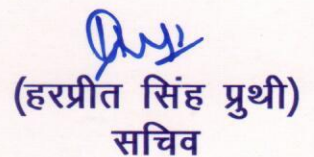 (हरप्रीत सिंह प्रुथी)
सचिव